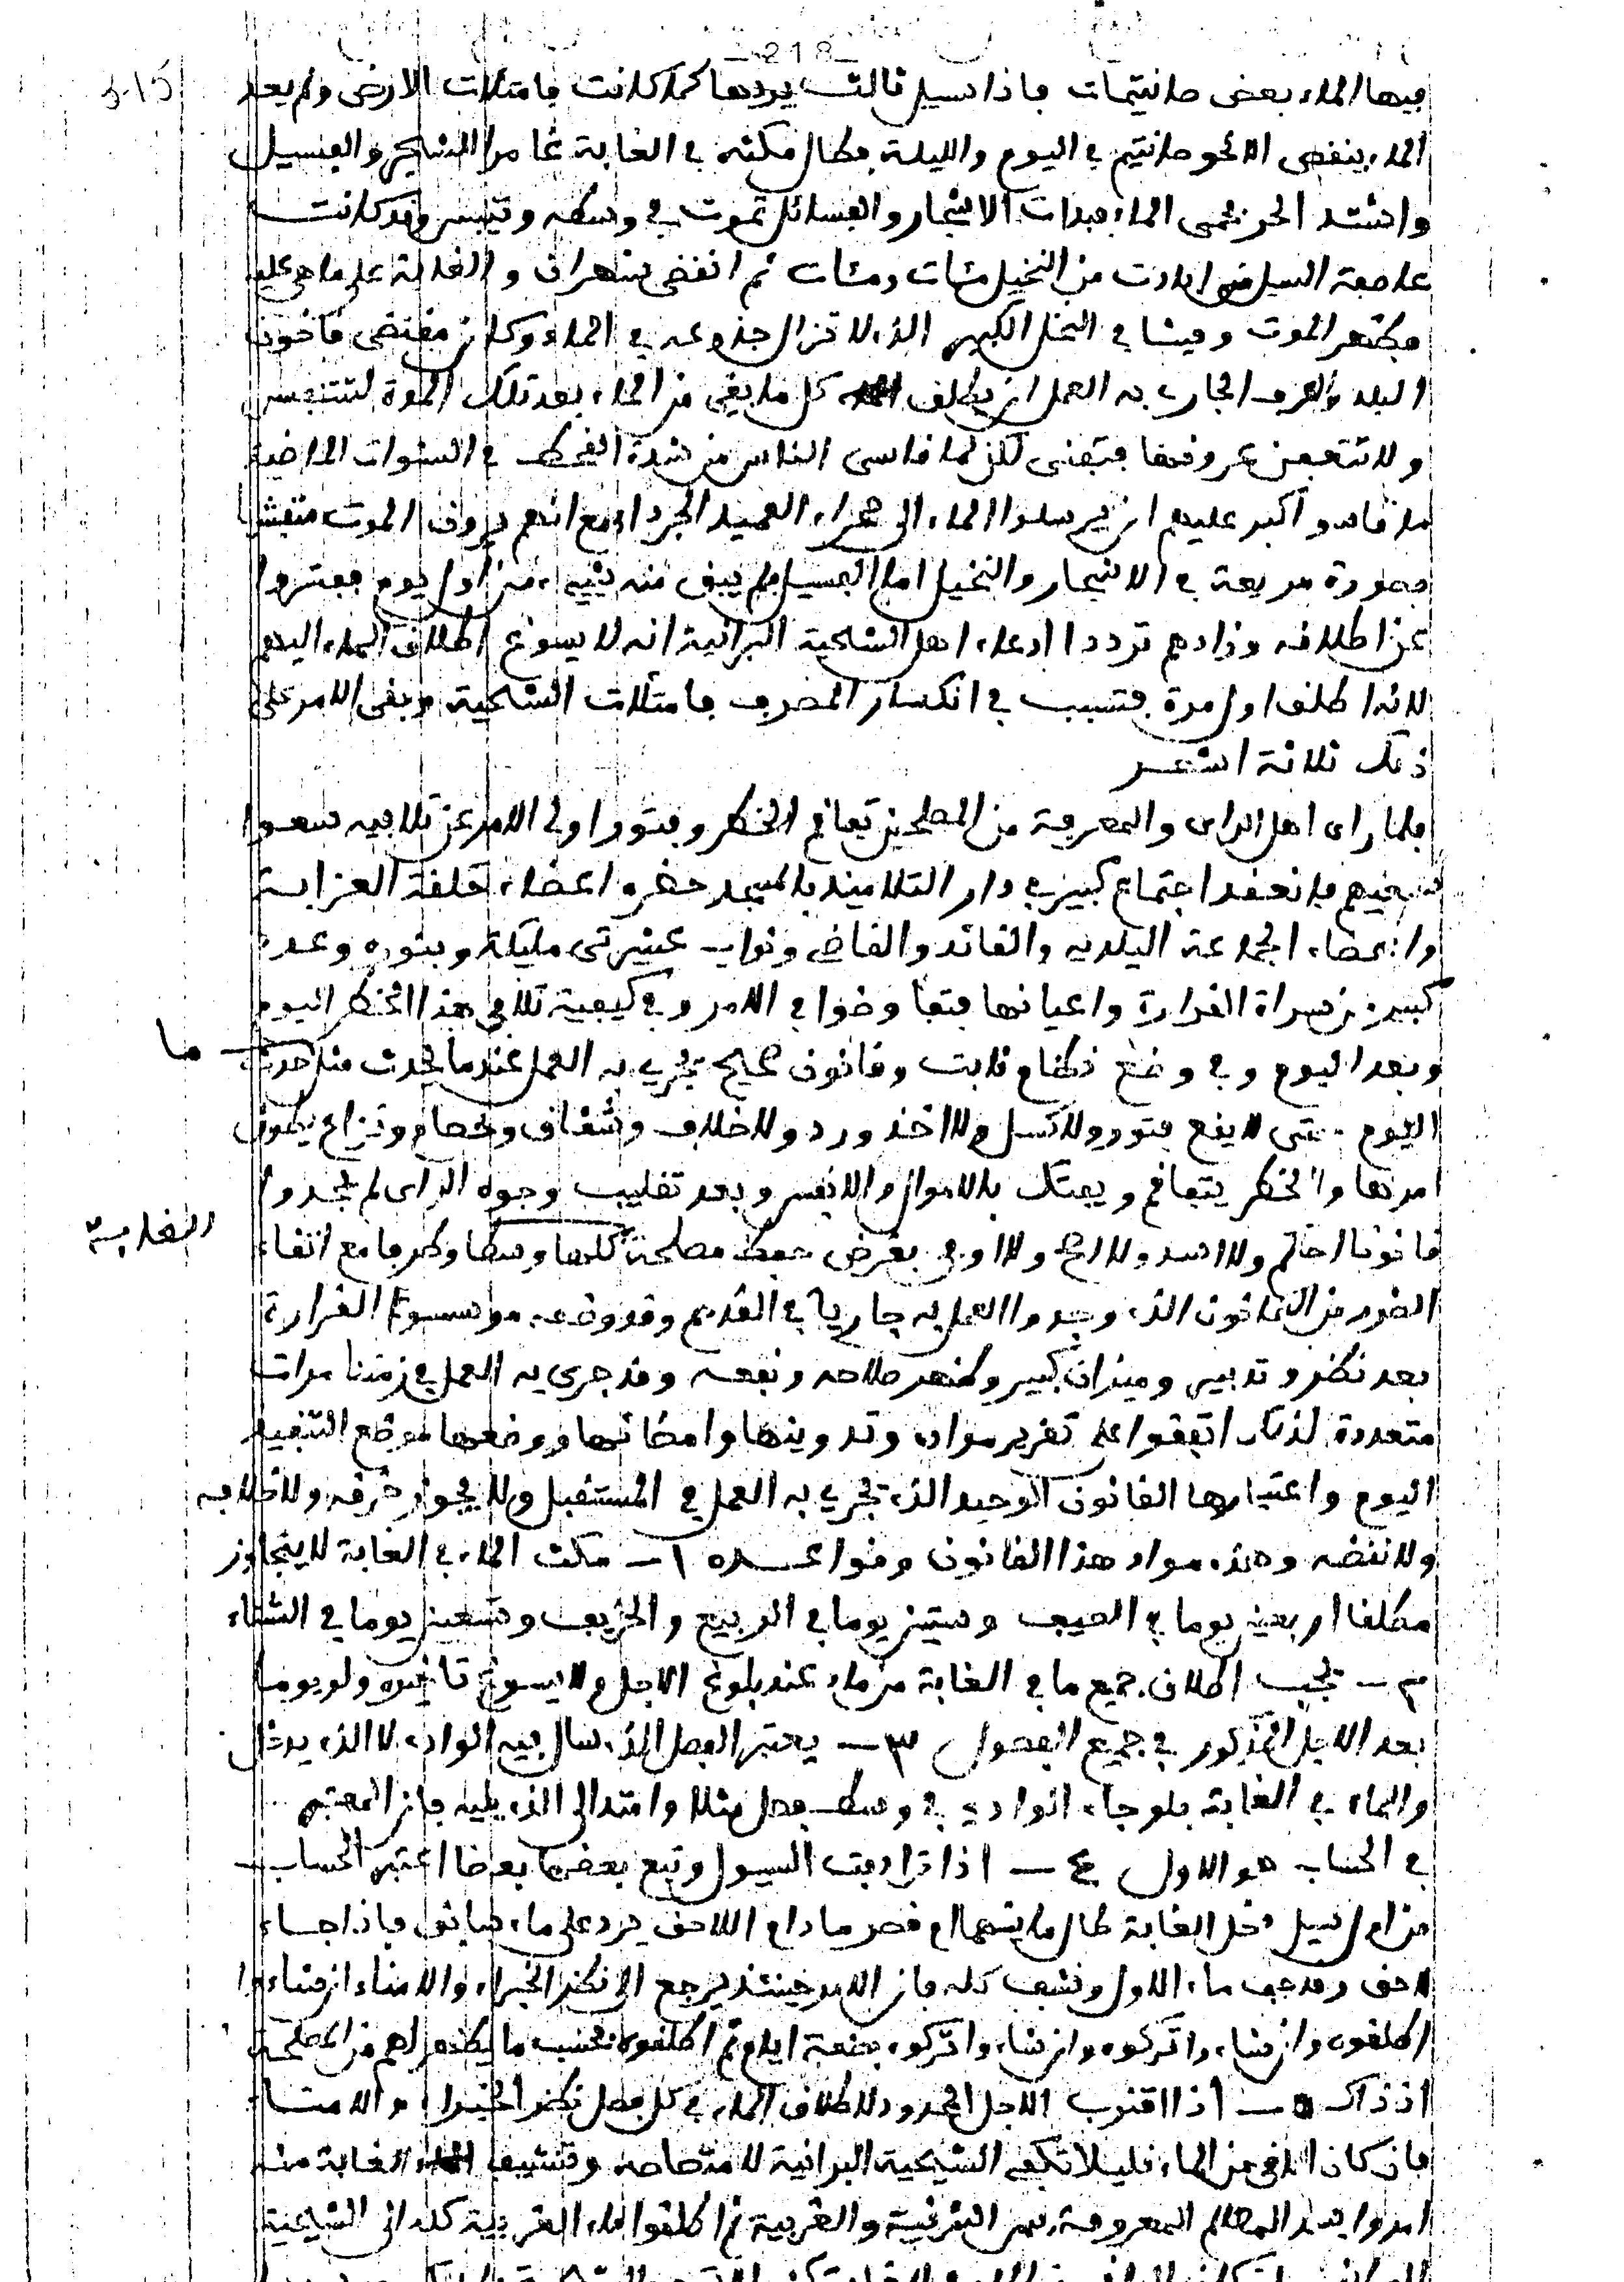 218
فيها الماء بعض سانتيمات فاذا بسيل ثالث يردها كما كانت فامتلات الارض ولم يعد
الماء ينقص الا نحو سانتيم في اليوم والليلة فطال مكثه في الغابة غامرا للشجر والفسيل
واشتد الحر فحمى الماء فبدات الاشجار والفسائل تموت في وسطه وتيبس وقد كانت
ابادت من النخيل مئات ومئات ثم انقضى شهران والغابة على ما هي عليه
فظهر الموت وفشا في النخل الكبير الذي لا تزال جذوعه في الماء وكان مقتضى قانون
البلد والعرف الجاري به العمل ان يطلق كل ما بقي من الماء بعد تلك المدة لتتنفس
ولا تتعفن عروقها فتفنى لكن لما قاسى الناس من شدة القحط في السنوات الماضية
ما قاسوا كبر عليهم ان يرسلوا الماء الى صحراء العميد الجرداء مع انهم يرون الموت متفشيا
بصورة مريعة في الاشجار والنخيل اما الفسيل فلم يبق منه شيء من اول يوم ففتروا
عن اطلاقه وزادهم ترددا ادعاء اهل الشحية البرانية انه لا يسوغ اطلاق الماء اليهم
لانه اطلق اول مرة فتسبب في انكسار المصرف فامتلات الشحية وبقى الامر على
ذلك ثلاثة اشهر
فلما راى اهل الراى والمعرفة من المصلحين تفاقم الخطر وفتور اولى الامر عن تلافيه سعوا
سعيهم فانعقد اجتماع كبير في دار التلاميذ بالمسجد حضره اعضاء حلقة العزابة
واعضاء الجماعة البلدية والقائد والقاضي ونواب عشيرتي مليكة وبنوره وعدد
كبير من سراة القرارة واعيانها فتفاوضوا في الامر وفي كيفية تلافي هذا الخطر اليوم
وبعد اليوم وفي وضع نظام ثابت وقانون صحيح يجري به العمل عندما يحدث مثل ما حدث
اليوم حتى لا يقع فتور ولا كسل ولا اخذ ورد ولا خلاف وشقاق وخصام ونزاع يطول
امدها والخطر يتفاقم ويفتك بالاموال والانفس وبعد تقليب وجوه الراى لم يجدوا
قانونا احكم ولا اسد ولا ارجح ولا اوفى بغرض حفظ مصلحة الغابة كلها وسطا وطرفا مع اتقاء
الضرر من القانون الذي وجدوا العمل به جاريا في القديم وقد وضعه مؤسسوا القرارة
بعد نظر وتدبير وميزان كبير وظهر صلاحه ونفعه وقد جرى به العمل في زمننا مرات
متعددة لذلك اتفقوا على تقرير مواده وتدوينها وامضائها ووضعها موضع التنفيذ
اليوم واعتبارها القانون الوحيد الذي يجري به العمل في المستقبل ولا يجوز خرقه ولا خلافه
ولا نقضه وهذه مواد هذا القانون وقواعده ١ـ مكث الماء في الغابة لا يتجاوز
مطلقا اربعين يوما في الصيف وستين يوما في الربيع والخريف وتسعين يوما في الشتاء
٢ـ يجب اطلاق جميع ما في الغابة من ماء عند بلوغ الاجل ولا يسوغ تاخيره ولو يوما
بعد الاجل المذكور في جميع الفصول ٣ـ يعتبر الفصل الذي سال فيه الوادي لا الذي يدخل
والماء في الغابة فلو جاء الوادي في وسط فصل مثلا وامتد الى الذي يليه فان المعتبر
في الحساب هو الاول ٤ـ اذا ترادفت السيول وتبع بعضها بعضا اعتبر الحساب
من اول سيل دخل الغابة طال ما بينهما او قصر ما دام اللاحق يرد على ماء سابق فاذا جاء
لاحق وقد جف ماء الاول ونشف كله فان الامر حينئذ يرجع الى نظر الخبراء والامناء ان شاءوا
اطلقوه وان شاءوا تركوه وان شاءوا تركوه بضعة ايام ثم اطلقوه بحسب ما يظهر لهم من المصلحة
اذ ذاك ٥ـ اذا اقترب الاجل المحدود لاطلاق الماء في كل فصل نظر الخبراء والامناء
فان كان الباقي من الماء قليلا تكفي الشحية البرانية لامتصاصه وتنشيف الغابة منه
امروا بسد المظالم المعروفة بين الشرقية والغربية ثم اطلقوا ماء الغربية كله الى الشحية